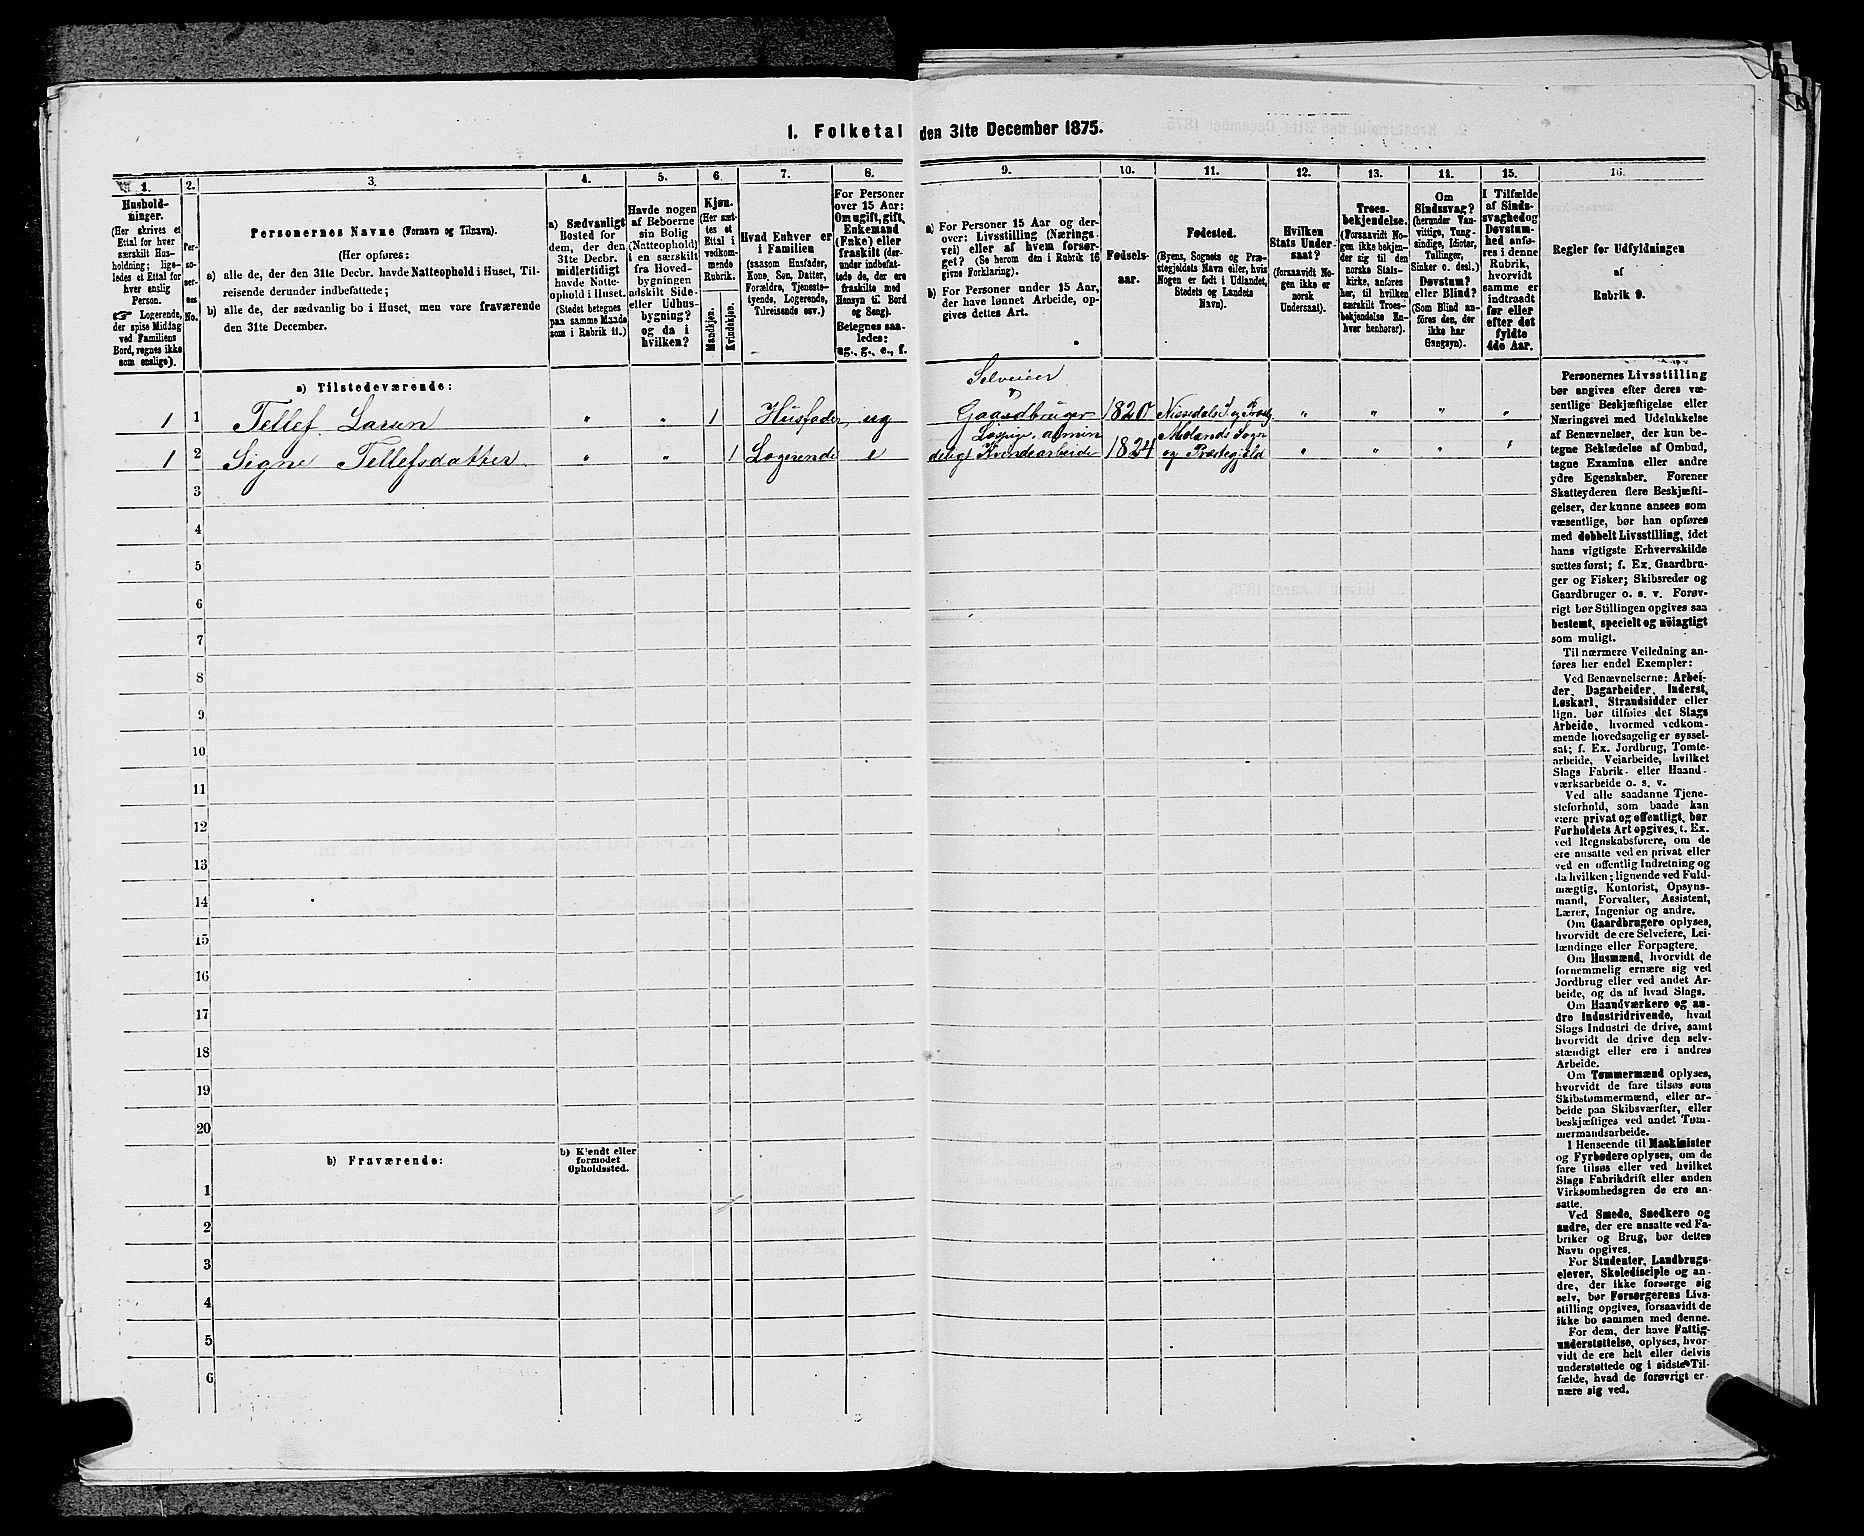 1. Folketal den 31te December 1875.
1.
Hushold-
ninger.
(Her skrives et
Ettal for hver
særskilt Hus-
holdning; lige-
ledes et Ettal for
hver enslig
Person.
☞ Logerende,
der spise Middag
ved Familiens
Bord, regnes ikke
som enslige).
2.
Per-
so-
ner-
nes
No.
3.
Personernes Navne (Fornavn og Tilnavn).
(Her opføres:
a) alle de, der den 31te Decbr. havde Natteophold i Huset, Til-
reisende derunder indbefattede;
b) alle de, der sædvanlig bo i Huset, men vare fraværende
den 31te December.
4.
a) Sædvanligt
Bosted for
dem, der den
31te Decbr.
midlertidigt
havde Natte-
ophold i Huset.
(Stedet betegnes
paa samme Maade
som i Rubrik 11.)
5.
Havde nogen
af Beboerne
sin Bolig
(Natteophold)
i en særskilt
fra Hoved-
bygningen
adskilt Side-
eller Udhus-
bygning?
og da i
hvilken?
6.
Kjøn.
(Her sæt-
tes et
Ettal i
vedkom-
mende
Rubrik.
Mandkjøn.
Kvindekjøn.
7.
Hvad Enhver er
i Familien
(saasom Husfader,
Kone, Søn, Datter,
Forældre, Tjeneste-
tyende, Logerende,
Tilreisende osv.)
8.
For Personer
over 15 Aar:
Om ugift, gift,
Enkemand
(Enke) eller
fraskilt (der-
under indbefat-
tede de, der ere
fraskilte med
Hensyn til Bord
og Seng).
Betegnes saa-
ledes:
ug., g., e., f.
9.
a) For Personer 15 Aar og der-
over: Livsstilling (Nærings-
vei) eller af hvem forsør-
get? (Se herom den i Rubrik 16
givne Forklaring).
b) For Personer under 15 Aar,
der have lønnet Arbeide, op-
gives dettes Art.
10.
Fødsels-
aar.
11.
Fødested.
(Byens, Sognets og Præ-
stegjeldets Navn eller, hvis
Nogen er født i Udlandet,
Stedets og Landets
Navn).
12.
Hvilken
Stats Under-
saat?
(forsaavidt No-
gen ikke er
norsk
Undersaat).
13.
Troes-
bekjendelse.
(Forsaavidt No-
gen ikke bekjen-
der sig til den
norske Stats-
kirke, anføres
her, til hvilken
særskilt Troes-
bekjendelse En-
hver henhører).
14.
Om
Sindssvag?
(herunder Van-
vittige, Tung-
sindige, Idioter,
Tullinger,
Sinker o. desl.)
Døvstum?
eller Blind?
(Som Blind an-
føres den, der
ikke har
Gangsyn).
15.
I Tilfælde
af Sinds-
svaghed og
Døvstum-
hed anfø-
res i denne
Rubrik,
hvorvidt
samme er
indtraadt
før eller
efter det
fyldte
4de Aar.
16.
Regler for Udfyldningen
af
Rubrik 9.
a) Tilstedeværende:
Selveier
1 1 Tellef Larsen " " 1 Husfader ug Gaardbruger 1820 Nissedals S. og Præstg. " " " "
Løspige. almin
Molands Sogn
1 2 Signe Tellefsdatter " " 1 Logerende e deligt Kvindearbeide 1824 og Præstegjeld " " " "
3
4
5
6
7
8
9
10
11
12
13
14
15
16
17
18
19
20
b) Fraværende:
b) Kjendt eller
formodet
Opholdssted.
1
2
3
4
5
6
Personernes Livsstilling
bør angives efter deres væ-
sentlige Beskjæftigelse eller
Næringsvei med Udelukkelse
af Benævnelser, der kun be-
tegne Beklædelse af Ombud,
tagne Examina eller andre
ydre Egenskaber. Forener
Skatteyderen flere Beskjæfti-
gelser, der kunne ansees som
væsentlige, bør han opføres
med dobbelt Livsstilling, idet
hans vigtigste Erhvervskilde
sættes først; f. Ex. Gaardbru-
ger og Fisker; Skibsreder og
Gaardbruger o. s. v. Forøv-
rigt bør Stillingen opgives saa
bestemt, specielt og nöiagtigt
som muligt.
Til nærmere Veiledning an-
føres her endel Exempler:
Ved Benævnelserne: Arbei-
der, Dagarbeider, Inderst,
Løskarl, Strandsidder eller
lign. bør tilføies det Slags
Arbeide, hvormed vedkom-
mende hovedsagelig er syssel-
sat; f. Ex. Jordbrug, Tomte-
arbeide, Veiarbeide, hvilket
Slags Fabrik- eller Haand-
værksarbeide o. s. v.
Ved alle saadanne Tjene-
steforhold, som baade kan
være privat og offentligt, bør
Forholdets Art opgives, t. Ex.
ved Regnskabsførere, om de
ere ansatte ved en privat eller
ved en offentlig Indretning og
da hvilken; lignende ved Fuld-
mægtig, Kontorist, Opsyns-
mand, Forvalter, Assistent,
Lærer, Ingeniør og andre.
Om Gaardbrugere oplyses,
hvorvidt de ere Selveiere, Lei-
lændinge eller Forpagtere.
Om Husmænd, hvorvidt de
fornemmelig ernære sig ved
Jordbrug eller ved andet Ar-
beide, og da af hvad Slags.
Om Haandværkere og an-
dre Industridrivende, hvad
Slags Industri de drive, samt
hvorvidt de drive den selv-
stændigt eller ere i andres
Arbeide.
Om Tømmermænd oplyses,
hvorvidt de fare tilsøs som
Skibstømmermænd, eller ar-
beide paa Skibsværfter, eller
beskjæftiges ved andet Tøm-
mermandsarbeide.
I Henseende til Maskinister
og Fyrbødere oplyses, om de
fare tilsøs eller ved hvilket
Slags Fabrikdrift eller anden
Virksomhedsgren de ere an-
satte.
Ved Smede, Snedkere og
andre, der ere ansatte ved Fa-
briker og Brug, bør dettes
Navn opgives.
For Studenter, Landbrugs-
elever, Skoledisciple og an-
dre, der ikke forsørge sig
selv, bør Forsørgerens Livs-
stilling opgives, forsaavidt de
ikke bo sammen med denne.
For dem, der have Fattig-
understøttelse, oplyses, hvor-
vidt de ere helt eller delvis
understøttede og i sidste Til-
fælde, hvad de forøvrigt er-
nære sig ved.